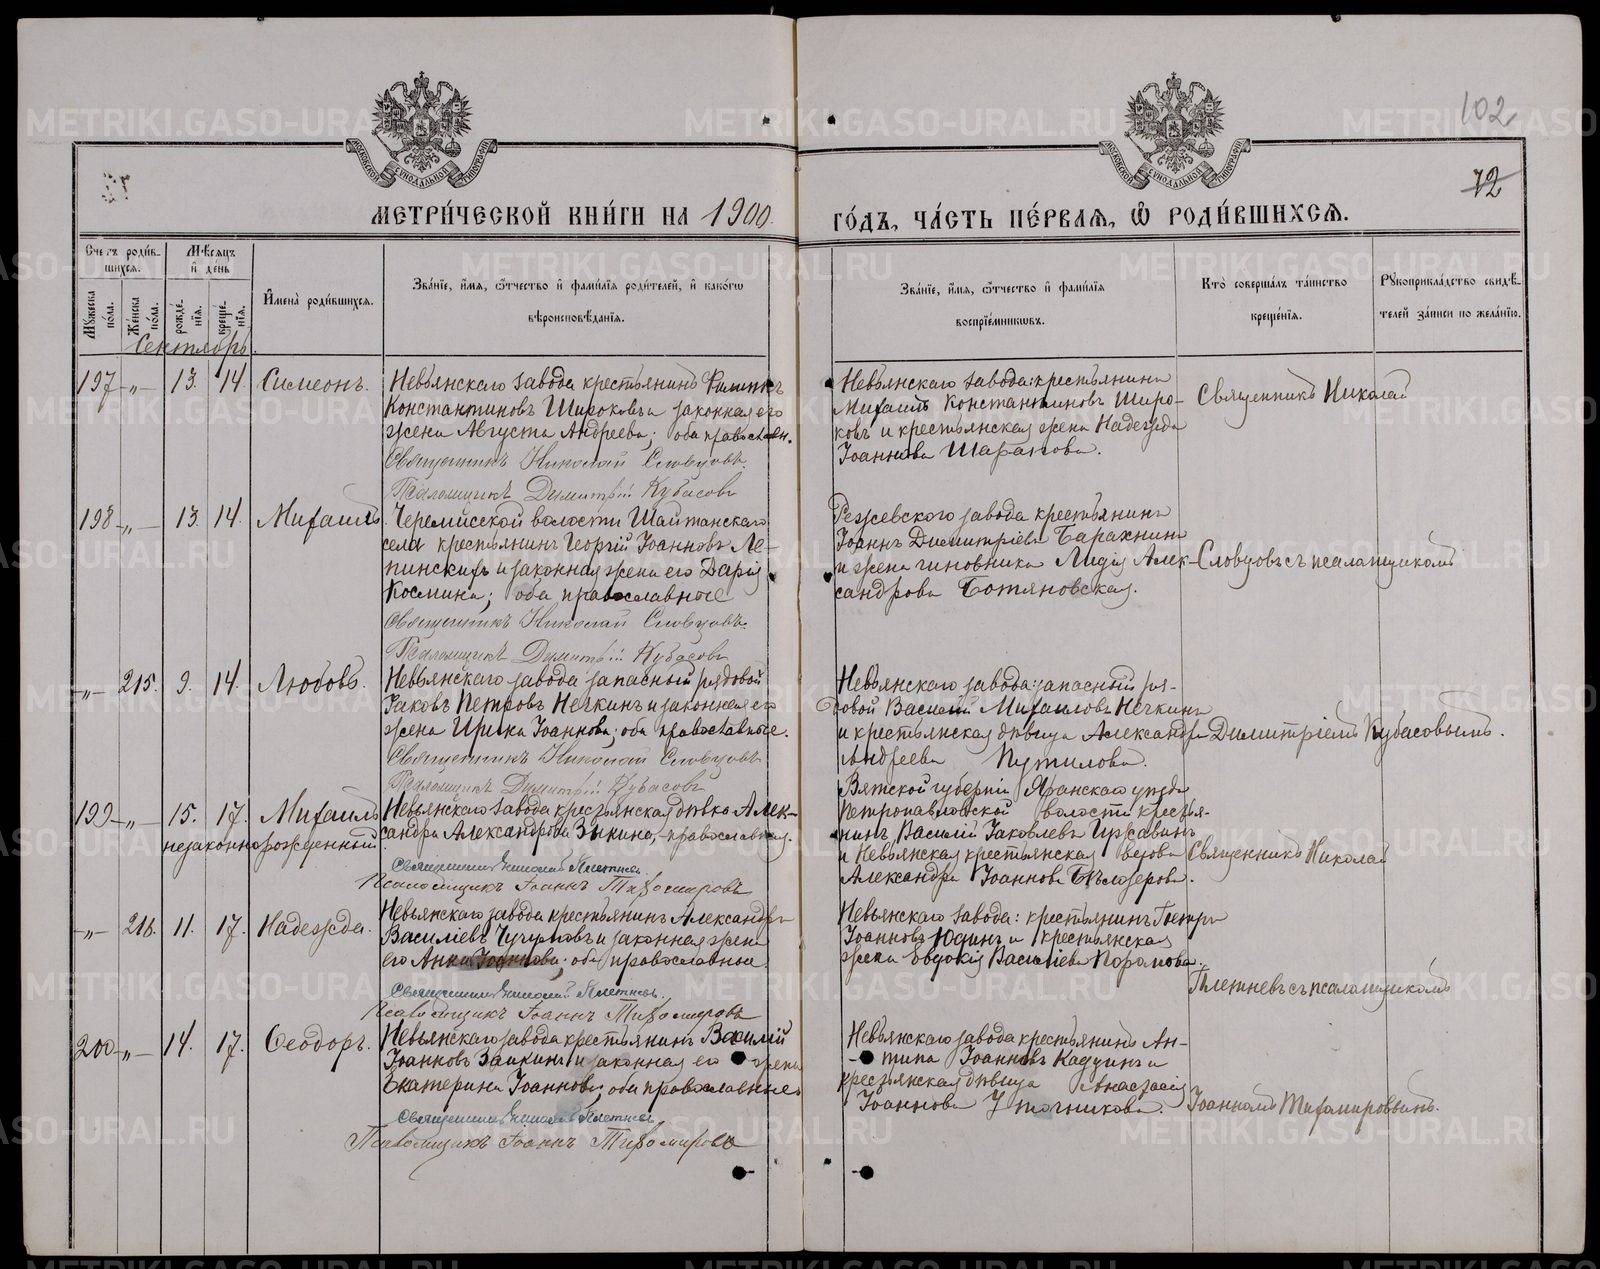 102
72
МЕТРИ́ЧЕСКОЙ КНИ́ГИ НА 1900.
ГО́ДЪ, ЧА́СТЬ ПЕ́РВАѦ, Ѿ РОДИ́ВШИХСѦ.
Сче́тъ роди́в-
шихсѧ.
Мѣ́сѧцъ
и҆ де́нь
Мꙋ́жеска
по́ла.
Же́нска
по́ла.
рожде́-
нїѧ.
креще́-
нїѧ.
И҆мена̀ роди́вшихсѧ.
Зва́нїе, и҆́мѧ, ѻ҆́тчество и҆ фами́лїѧ роди́телей, и҆ како́гѡ
вѣроисповѣ́данїѧ.
Зва́нїе, и҆́мѧ, ѻ҆́тчество и҆ фами́лїѧ
воспрїе́мникѡвъ.
Кто̀ соверша́лъ та́инство
креще́нїѧ.
Рꙋкоприкла́дство свидѣ́-
телей за́писи по жела́нїю.
Сентябрь.
197 -„- 13. 14. Симеонъ.
Невьянскаго завода крестьянинъ Филиппъ
Константиновъ Широковъ и законная его
жена Августа Андреева; оба православн.
Священникъ Николай Словцовъ.
Псаломщикъ Димитрій Кубасовъ
Невьянскаго завода: крестьянинъ
Михаилъ Константиновъ Широ-
ковъ и крестьянская жена Надежда
Іоаннова Шарапова.
Священникъ Николай
198 -„- 13. 14. Михаилъ
Черемисской волости Шайтанскаго
села крестьянинъ Георгій Іоанновъ Ле-
пинскихъ и законная жена его Дарія
Космина; оба православные
Священникъ Николай Словцовъ.
Псаломщикъ Димитрій Кубасовъ
Режевского завода крестьянинъ
Іоаннъ Димитріевъ Барахнинъ
и жена чиновника Лидія Алек-
сандрова Ботяновская.
Словцовъ съ псаломщикомъ
-„- 215. 9. 14. Любовь.
Невьянскаго завода запасный рядовой
Іаковъ Петровъ Нечкинъ и законная его
жена Ирина Іоаннова; оба православные.
Священникъ Николай Словцовъ
Псаломщикъ Димитрій Кубасовъ
Невьянскаго завода: запасный ря-
довой Василій Михаиловъ Нечкинъ
и крестьянская дѣвица Александра
Андреева Путилова.
Димитріемъ Кубасовымъ.
199 -„- 15. 17. Михаилъ
незаконнорожденный
Невьянскаго завода крестьянская дѣвка Алек-
сандра Александрова Зыкина, православная.
Священникъ Николай Плетневъ
Псаломщикъ Іоаннъ Тихомировъ
Вятской губерніи Яранскаго уѣзда
Петропавловской волости крестья-
нинъ Василій Іаковлевъ Иржавинъ
и Невьянская крестьянская вдова
Александра Іоаннова Бѣлозерова.
Священникъ Николай
-„- 216. 11. 17. Надежда.
Невьянскаго завода крестьянинъ Александръ
Василіевъ и законная жена
его Анна; оба православные.
Священникъ Николай Плетневъ.
Псаломщикъ Іоаннъ Тихомировъ
Невьянскаго завода: крестьянинъ Петръ
Іоанновъ Юдинъ и крестьянская
жена Евдокія Василіева
Плетневъ съ псаломщикомъ
200 -„- 14. 17. Ѳеодоръ.
Невьянскаго завода крестьянинъ Василій
Іоанновъ Заикинъ и законная его жена
Екатерина Іоаннова; оба православные
Священникъ Николай Плетневъ
Псаломщикъ Іоаннъ Тихомировъ
Невьянскаго завода крестьянинъ Ан-
типа Іоанновъ Кадушинъ и
крестьянская дѣвица Анастасія
Іоаннова
Іоанномъ Тихомировымъ.
METRIKI.GASO-URAL.RU